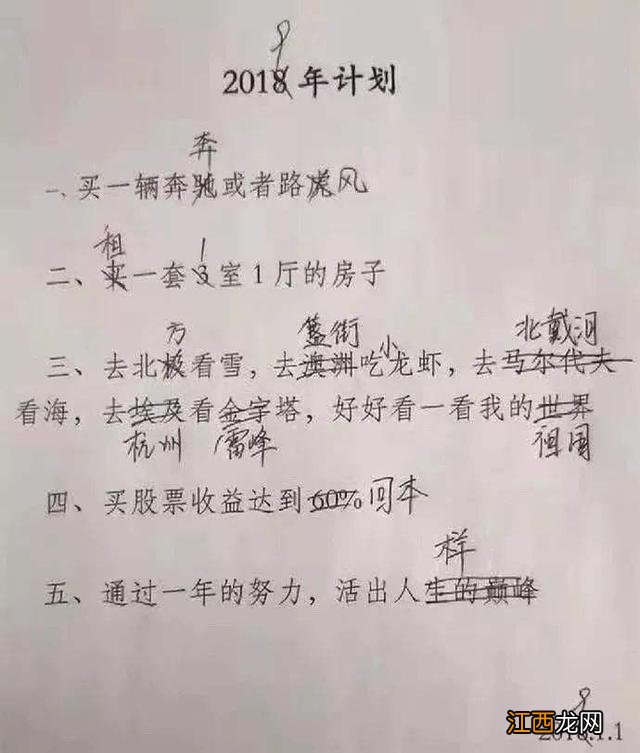 9
2018年计划
奔
一、买一辆奔驰或者路虎风
租 1
二、买一套3室1厅的房子
方 簋街 小 北戴河
三、去北极看雪，去澳洲吃龙虾，去马尔代夫
看海，去埃及看金字塔，好好看一看我的世界
杭州 雷峰 祖国
四、买股票收益达到60%回本
样
五、通过一年的努力，活出人生的巅峰
9
2018.1.1
江西龙网